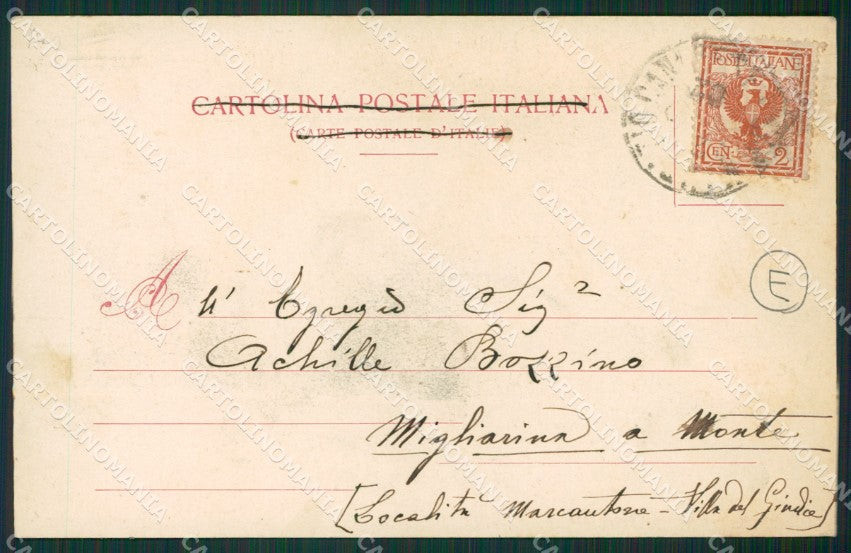 CARTOLINA POSTALE ITALIANA
(CARTE POSTALE D'ITALIE)
POSTE ITALIANE
CEN. 2
E
All' Egregio Sigr
Achille Bozzino
Migliarina a Monte
[Località Marcantone - Villa del Giudice]
CARTOLINOMANIA